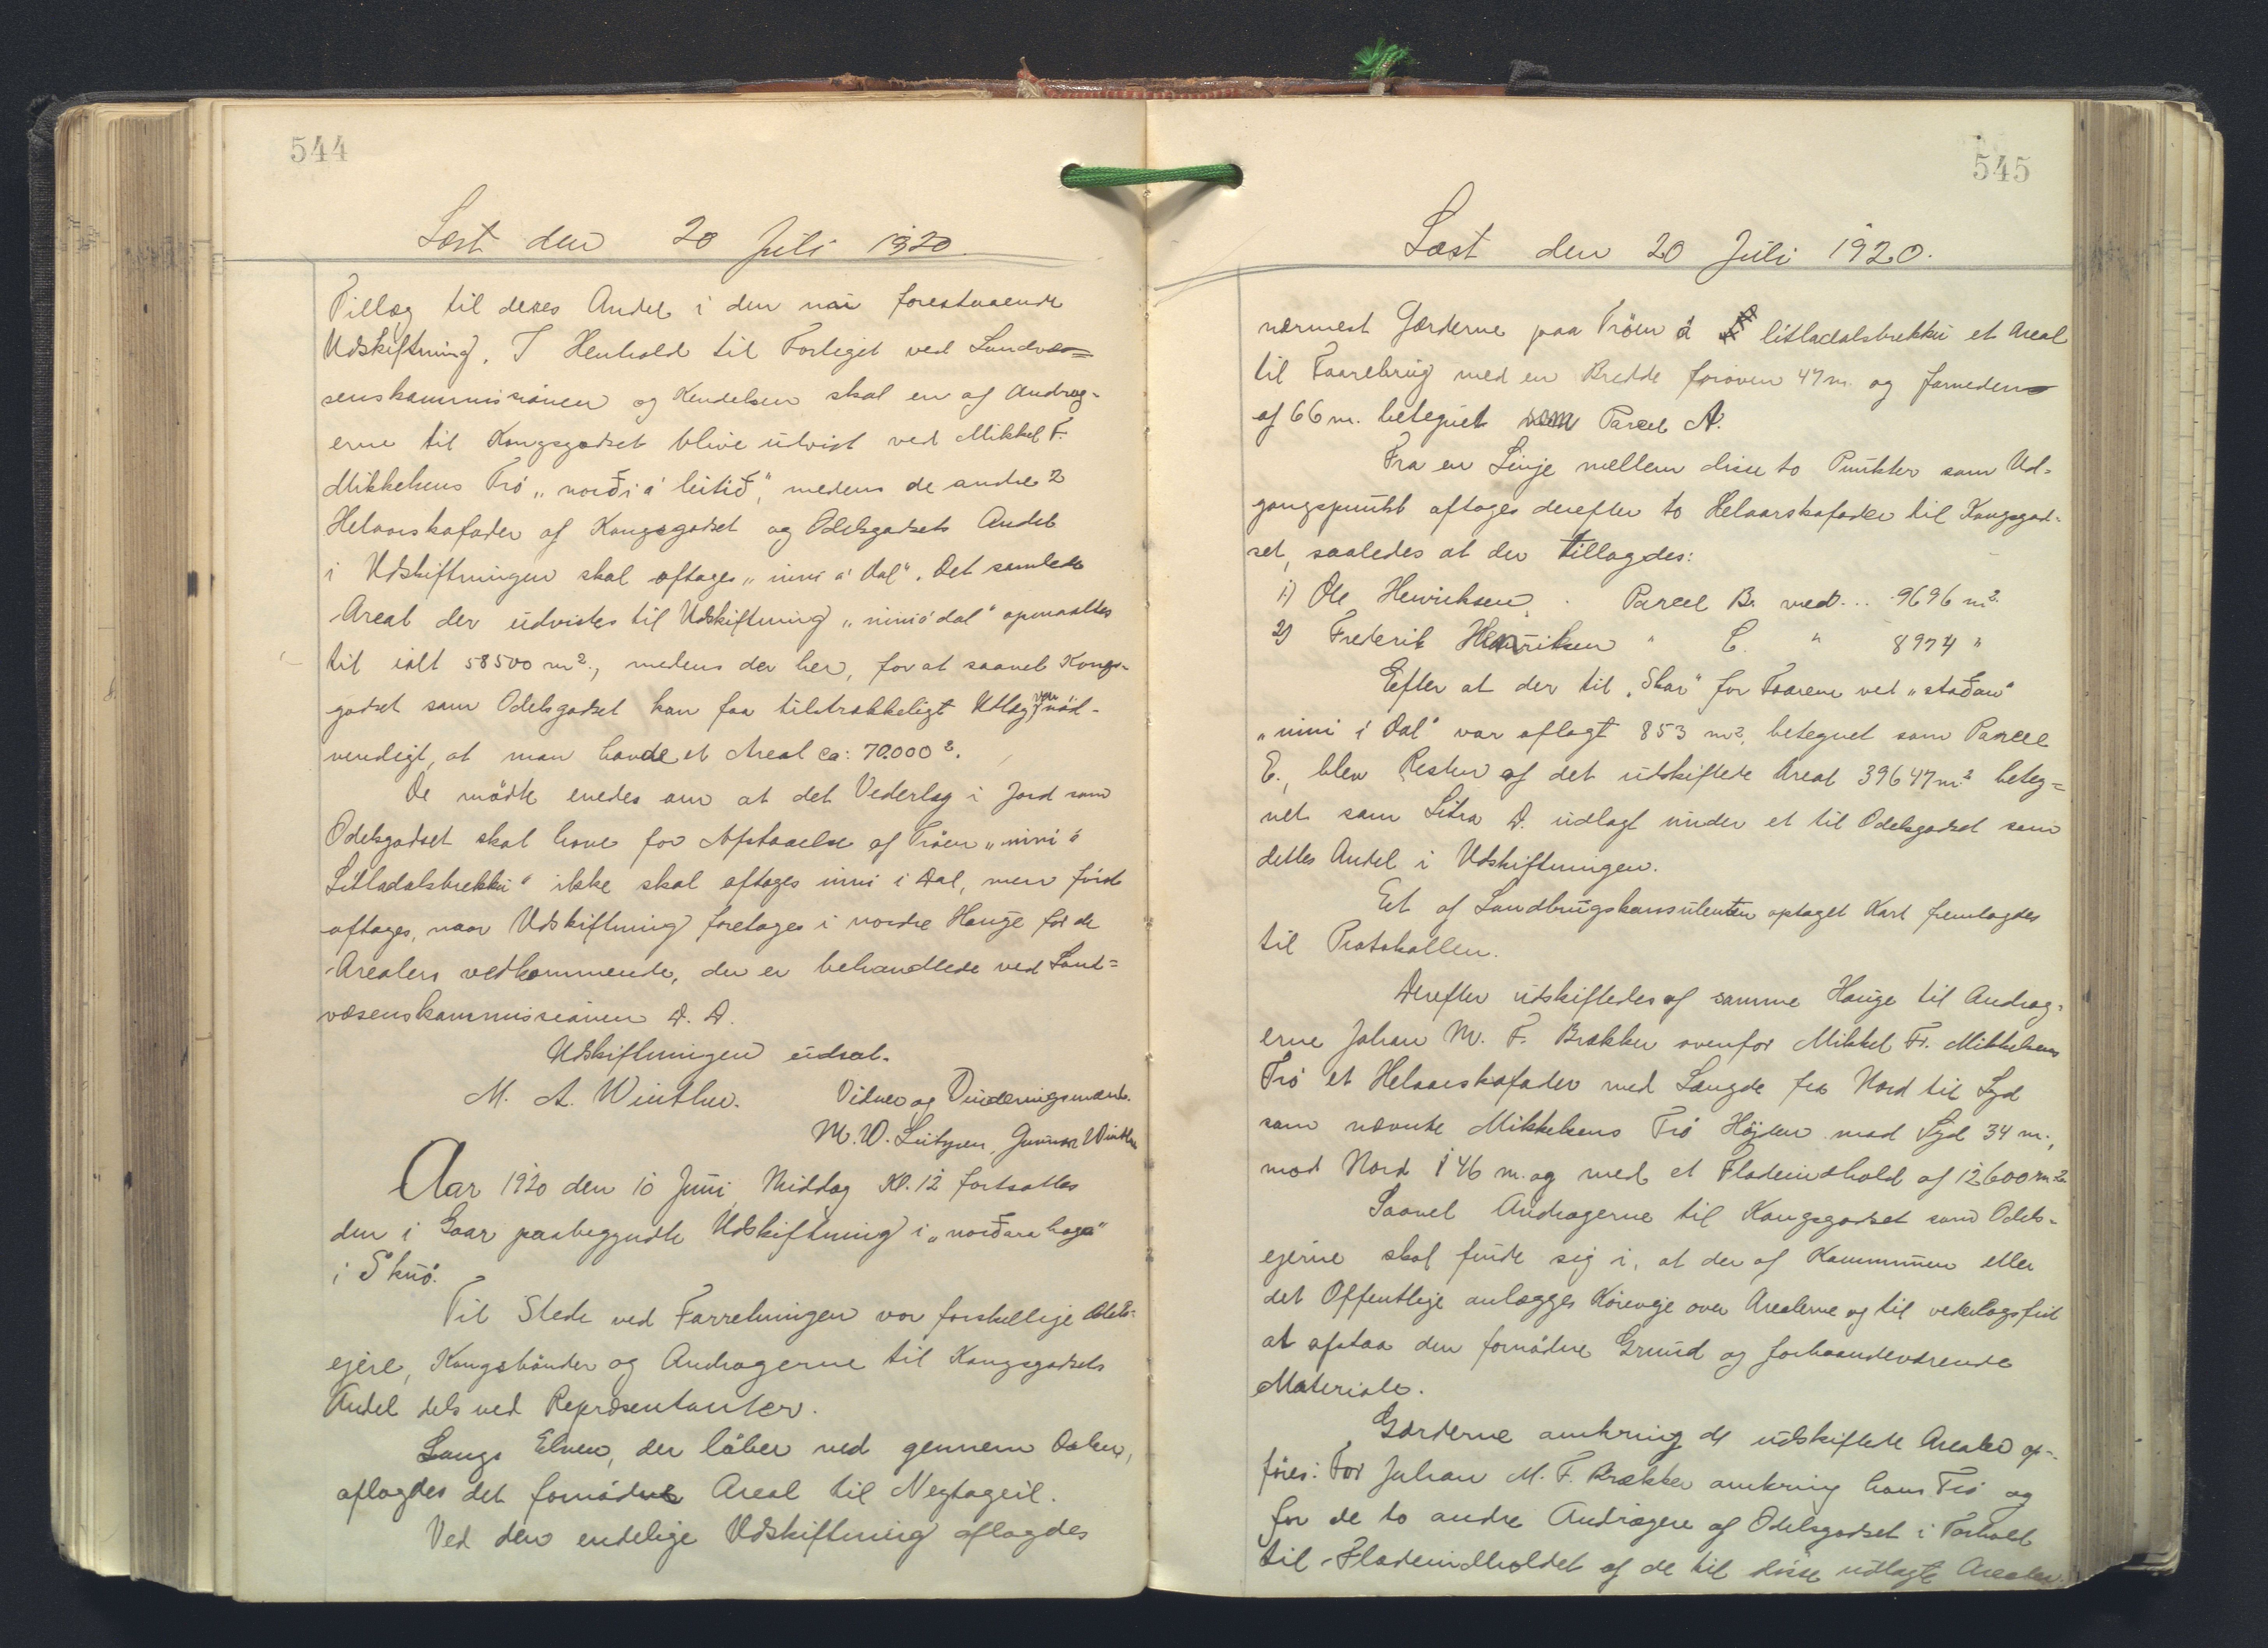 544
Læst den 20 Juli 1920.
Tillæg til deres Andel i den nu forestaaende
Udskiftning. I Henhold til Forliget ved Landvæ=
senskommissionen og Kendelsen skal en af Andrag-
erne til Kongsgodset blive udvist ved Mikkel F.
Mikkelsens Trö "norði á leitið", medens de andre 2
Helaarskofoder af Kongsgodset og Odelsgodsets Andel
i Udskiftningen skal aftages "inni á dal". Det samlede
Areal der udvistes til Udskiftning "inni á dal" opmaaltes
til ialt 58500 m²., medens der her, for at saavel Kongs-
godset som Odelsgodset kan faa tilstrækkeligt Udlæg var nöd-
vendigt, at man havde et Areal ca: 70.000 ².
De mödte enedes om at det Vederlag i Jord som
Odelsgodset skal have for Afstaaelse af Tröen "inni á
Litladalsbrekku" ikke skal aftages inni i Dal, men först
aftages, naar Udskiftning foretages i nordre Hauge for de
Arealers vedkommende, der er behandlede ved Land=
væsenskommissionen D. D.
Udskiftningen udsat.
M. A. Winther. Vidner og Vurderingsmænd.
M. W. Lützen, Gunnar Winther
Aar 1920 den 10 Juni Middag Kl. 12 fortsattes
den i Gaar paabegyndte Udskiftning i "norðara haga"
i Skuö.
Til Stede ved Forretningen var forskellige Odels-
ejere, Kongsbönder og Andragerne til Kongsgodsets
Andel dels ved Repræsentanter.
Langs Elven, der löber ned gennem Dalen,
aflagdes det fornödne Areal til Neytageil.
Ved den endelige Udskiftning aflagdes
545
Læst den 20 Juli 1920.
nærmest Gærderne paa Tröen á litladalsbrekku et Areal
til Faarebrug med en Bredde foroven 47 m. og forneden
af 66 m. betegnet som Parcel A.
Fra en Linje mellem disse to Punkter som Ud=
gangspunkt aftages derefter to Helaarskofoder til Kongsgod-
set, saaledes at der tillagdes:
1) Ole Henriksen. Parcel B. med... 9696 m²
2) Frederik Henriksen " C. " 8974 "
Efter at der til "Skar" for Faarene ved "støðan"
"inni i Dal" var aflagt 853 m², betegnet som Parcel
E., blev Resten af det udskiftede Areal 39647 m² beteg=
net som Litra D. udlagt under et til Odelsgodset som
dettes Andel i Udskiftningen.
Et af Landbrugskonsulenten optaget Kort fremlagdes
til Protokollen.
Derefter udskiftedes af samme Hauge til Andrag-
erne Johan M. F. Brekker ovenfor Mikkel Fr. Mikkelsens
Trö et Helaarskofoder med Længde fra Nord til Syd
som nævnte Mikkelsens Trö Höjden mod Syd 34 m.,
mod Nord 146 m. og med et Fladeindhold af 12600 m²
Saavel Andragerne til Kongsgodset som Odels-
ejerne skal finde sig i, at der af Kommunen eller
det Offentlige anlægges Köreveje over Arealerne og til vederlagsfrit
at afstaa den fornödne Grund og forhaandenværende
Materiale.
Gærderne omkring de udskiftede Arealer op-
föres: For Johan M. F. Brekker omkring hans Trö og
for de to andre Andragere af Odelsgodset i Forhold
til Fladeindholdet af de til disse udlagte Arealer.